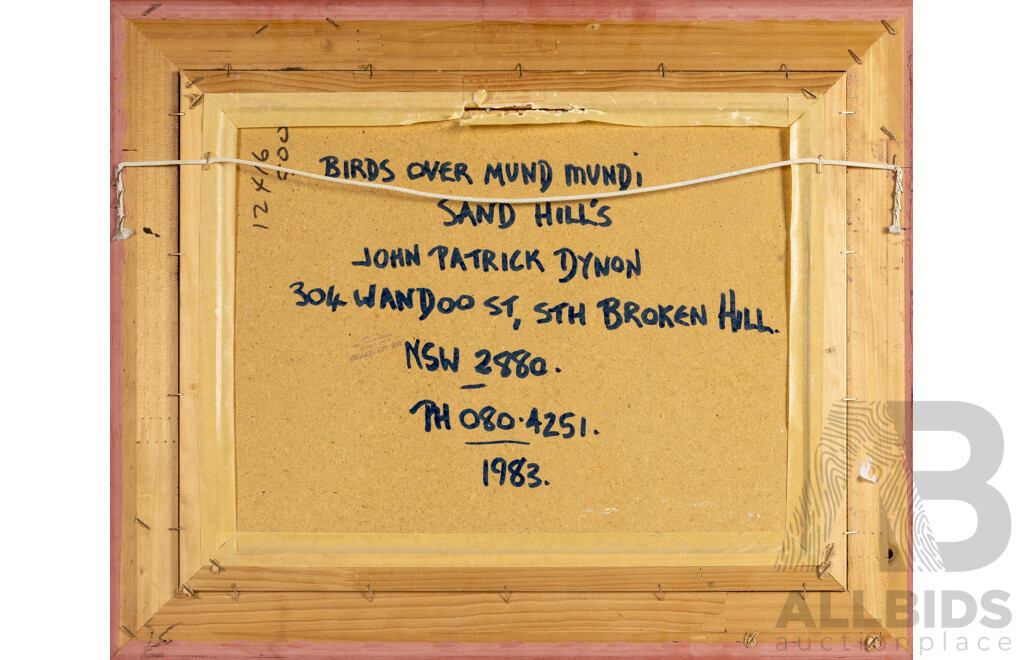 BIRDS OVER MUND MUNDi
SAND HILL'S
JOHN PATRICK DYNON
304 WANDOO ST, STH BROKEN HILL.
NSW 2880.
PH 080.4251.
1983.
12x16
500
AB
ALLBIDS
auctionplace